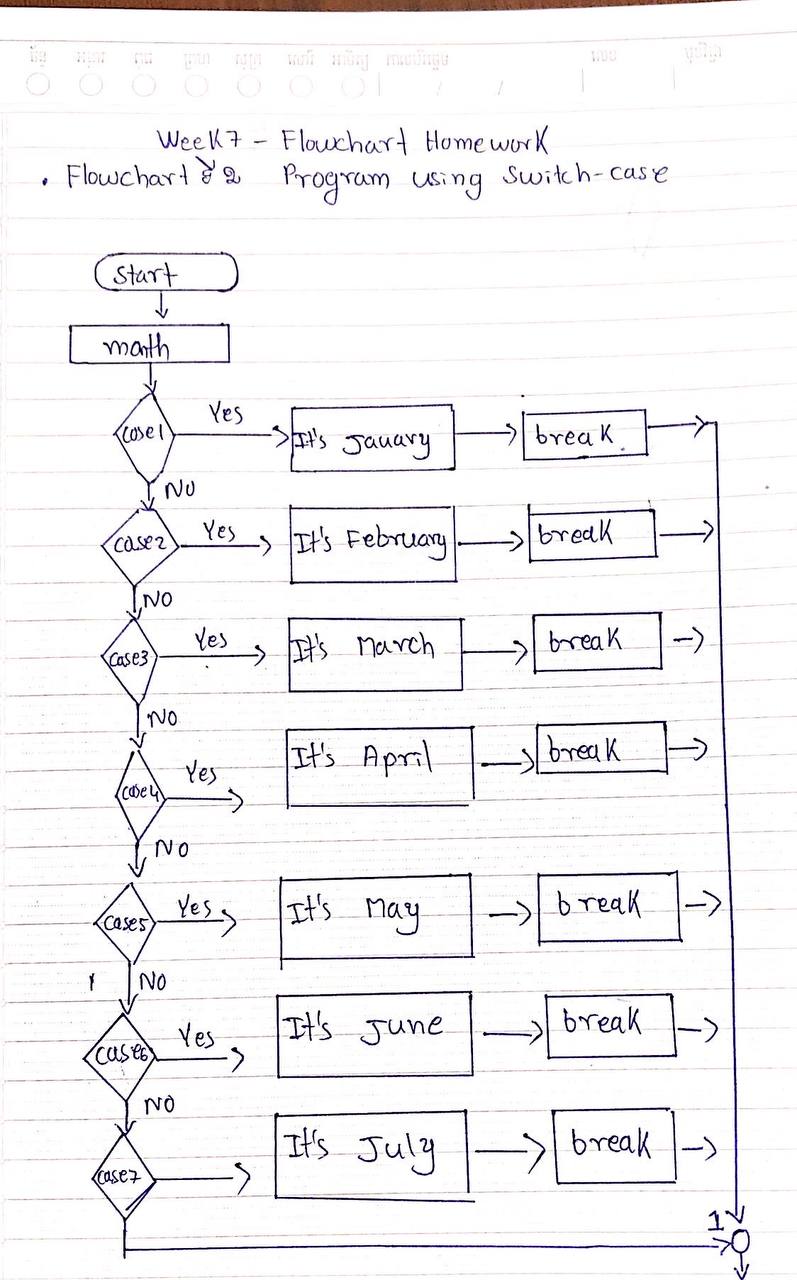 Week7 - Flowchart Homework
. Flowchart ទី 2 Program using Switch-case
Start
month
case1 Yes It's Jauary break
NO
case2 Yes It's February break
NO
case3 Yes It's March break
NO
case4 Yes It's April break
NO
case5 Yes It's May break
NO
case6 Yes It's June break
NO
case7 It's July break
1